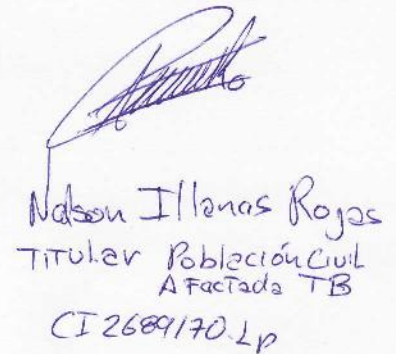 Nelson Illanas Rojas
Titular Población Civil
Afactada TB
CI 2689170 LP